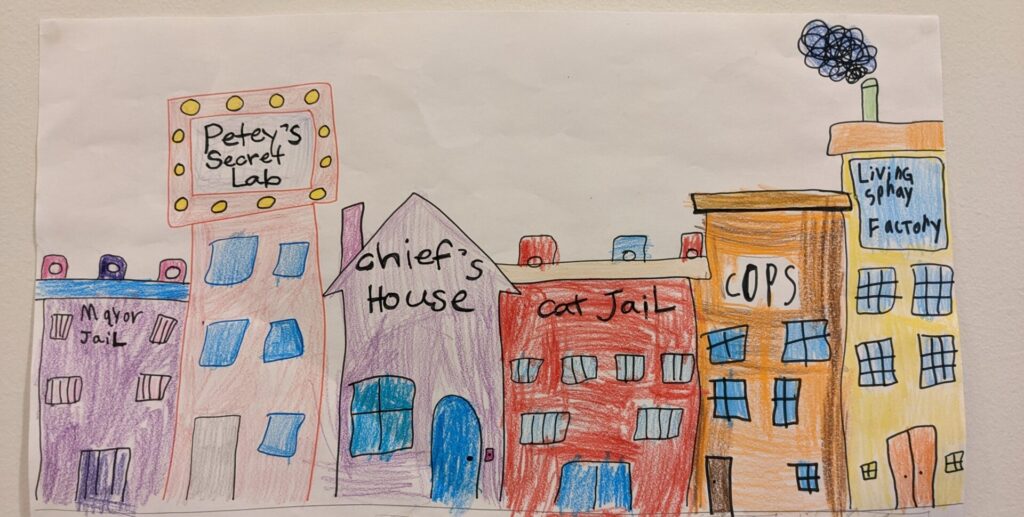 Mayor
Jail
Petey's
Secret
Lab
chief's
House
cat Jail
COPS
Living
sphay
Factory